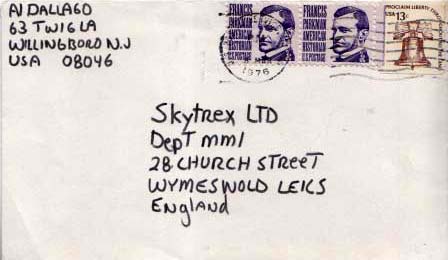 Al DALLAGO
63 TWIG LA
WILLINGBORO N.J
USA 08046
FRANCIS
PARKMAN
AMERICAN
HISTORIAN
U.S. POSTAGE
FRANCIS
PARKMAN
AMERICAN
HISTORIAN
U.S. POSTAGE
PROCLAIM LIBERTY
USA 13c
1976
Skytrex LTD
DepT mm1
28 CHURCH STREET
WYMESWOLD LEICS
England